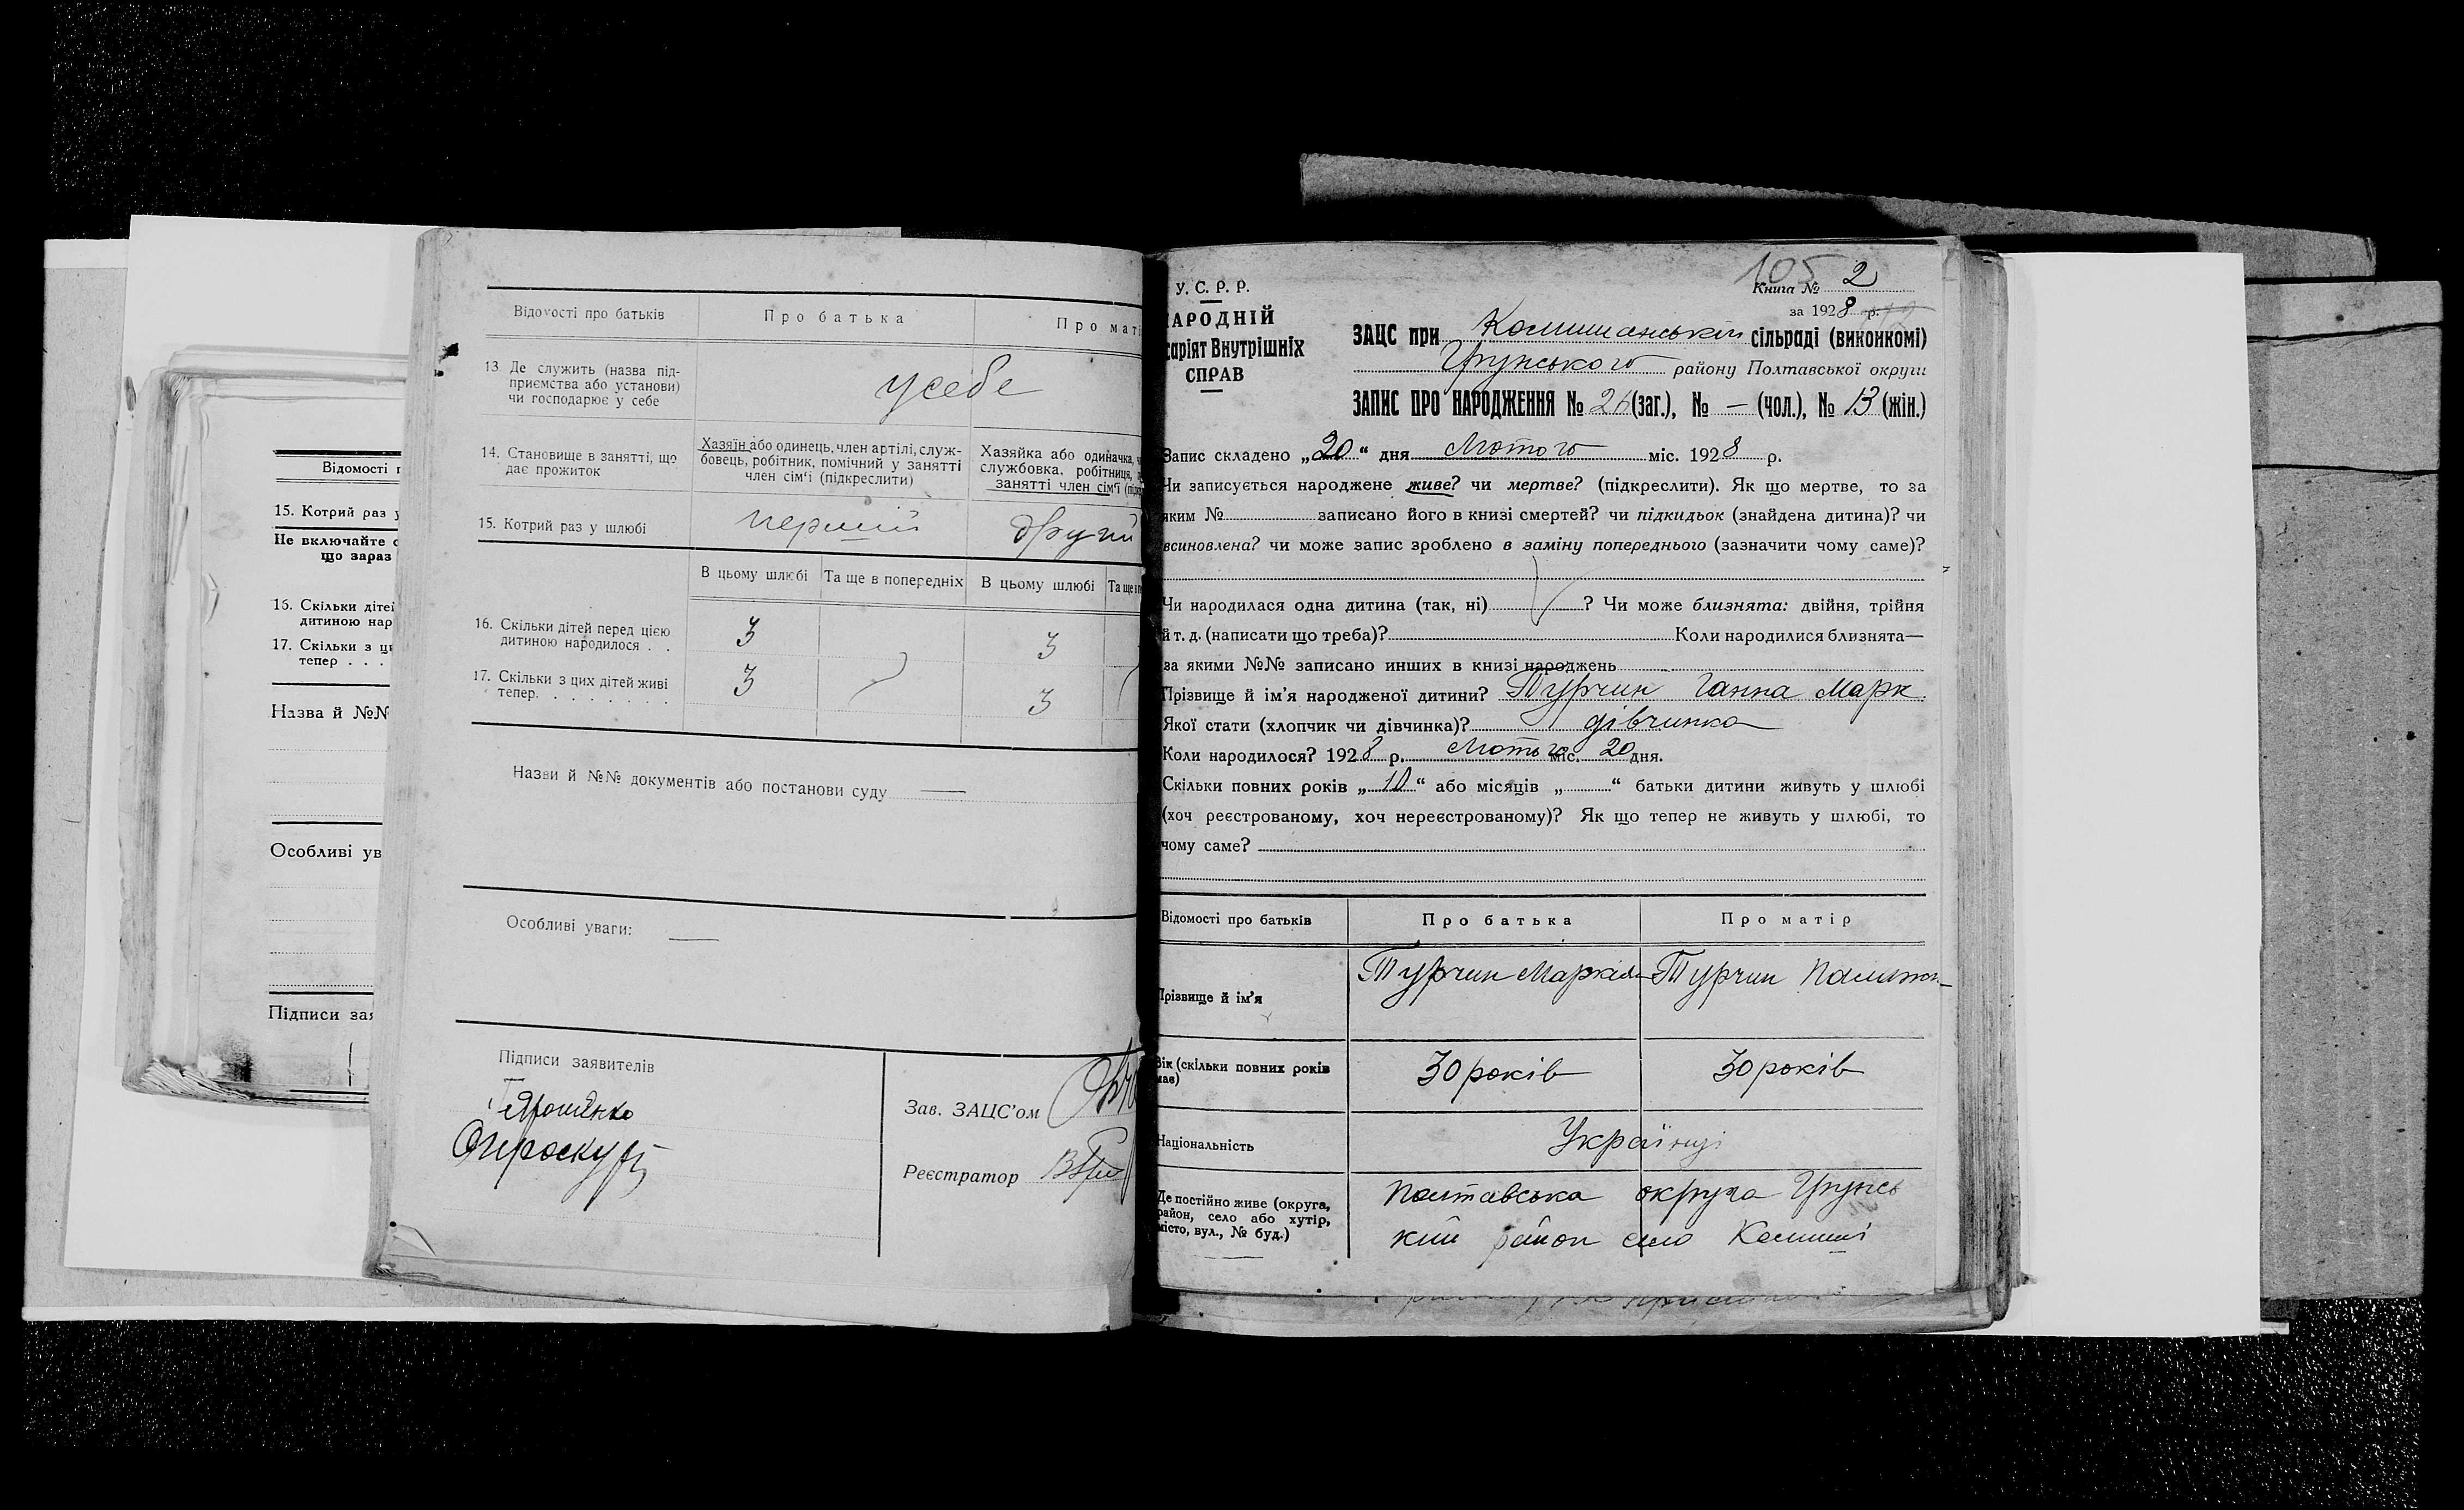 Відомості п
15. Котрий раз у
Не включайте с
що зараз
16. Скільки дітей
дитиною нар
17. Скільки з ци
тепер . . .
Назва й №№
Особливі ув
Підписи зая
Відомості про батьків
Про батька
Про маті
13. Де служить (назва під-
приємства або установи)
чи господарює у себе
усебе
14. Становище в занятті, що
дає прожиток
Хазяїн або одинець, член артілі, служ-
бовець, робітник, помічний у занятті
член сім'ї (підкреслити)
Хазяйка або одиначка, ч
службовка, робітниця, п
занятті член сім'ї (підкр
15. Котрий раз у шлюбі
перший
другий
В цьому шлюбі
Та ще в попередніх
В цьому шлюбі
Та ще в п
16. Скільки дітей перед цією
дитиною народилося . .
3
3
17. Скільки з цих дітей живі
тепер. . . . . . . .
3
3
Назви й №№ документів або постанови суду —
Особливі уваги: —
Підписи заявителів
Ярошенко
Проскур
Зав. ЗАЦС'ом
Реєстратор
105
У. С. Р. Р.
АРОДНІЙ
саріят Внутрішніх
СПРАВ
Книга № 2
за 1928 р.
ЗАЦС при Комишанській сільраді (виконкомі)
Грунського району Полтавської округи
ЗАПИС ПРО НАРОДЖЕННЯ № 26 (заг.), № — (чол.), № 13 (жін.)
Запис складено „20“ дня Лютого міс. 1928 р.
Чи записується народжене живе? чи мертве? (підкреслити). Як що мертве, то за
яким № записано його в книзі смертей? чи підкидьок (знайдена дитина)? чи
всиновлена? чи може запис зроблено в заміну попереднього (зазначити чому саме)?
Чи народилася одна дитина (так, ні) ? Чи може близнята: двійня, трійня
й т. д. (написати що треба)? Коли народилися близнята—
за якими №№ записано инших в книзі народжень
Прізвище й ім'я народженої дитини? Турчин Ганна Марк
Якої стати (хлопчик чи дівчинка)? дівчинка
Коли народилося? 1928 р. Лютого міс. 20 дня.
Скільки повних років „10“ або місяців „ “ батьки дитини живуть у шлюбі
(хоч реєстрованому, хоч нереєстрованому)? Як що тепер не живуть у шлюбі, то
чому саме?
Відомості про батьків
Про батька
Про матір
Прізвище й ім'я
Турчин Маркіян
Турчин
Вік (скільки повних років
має)
30 років
30 років
Національність
Українці
Де постійно живе (округа,
район, село або хутір,
місто, вул., № буд.)
Полтавська округа Грунсь
кий район село Комиші